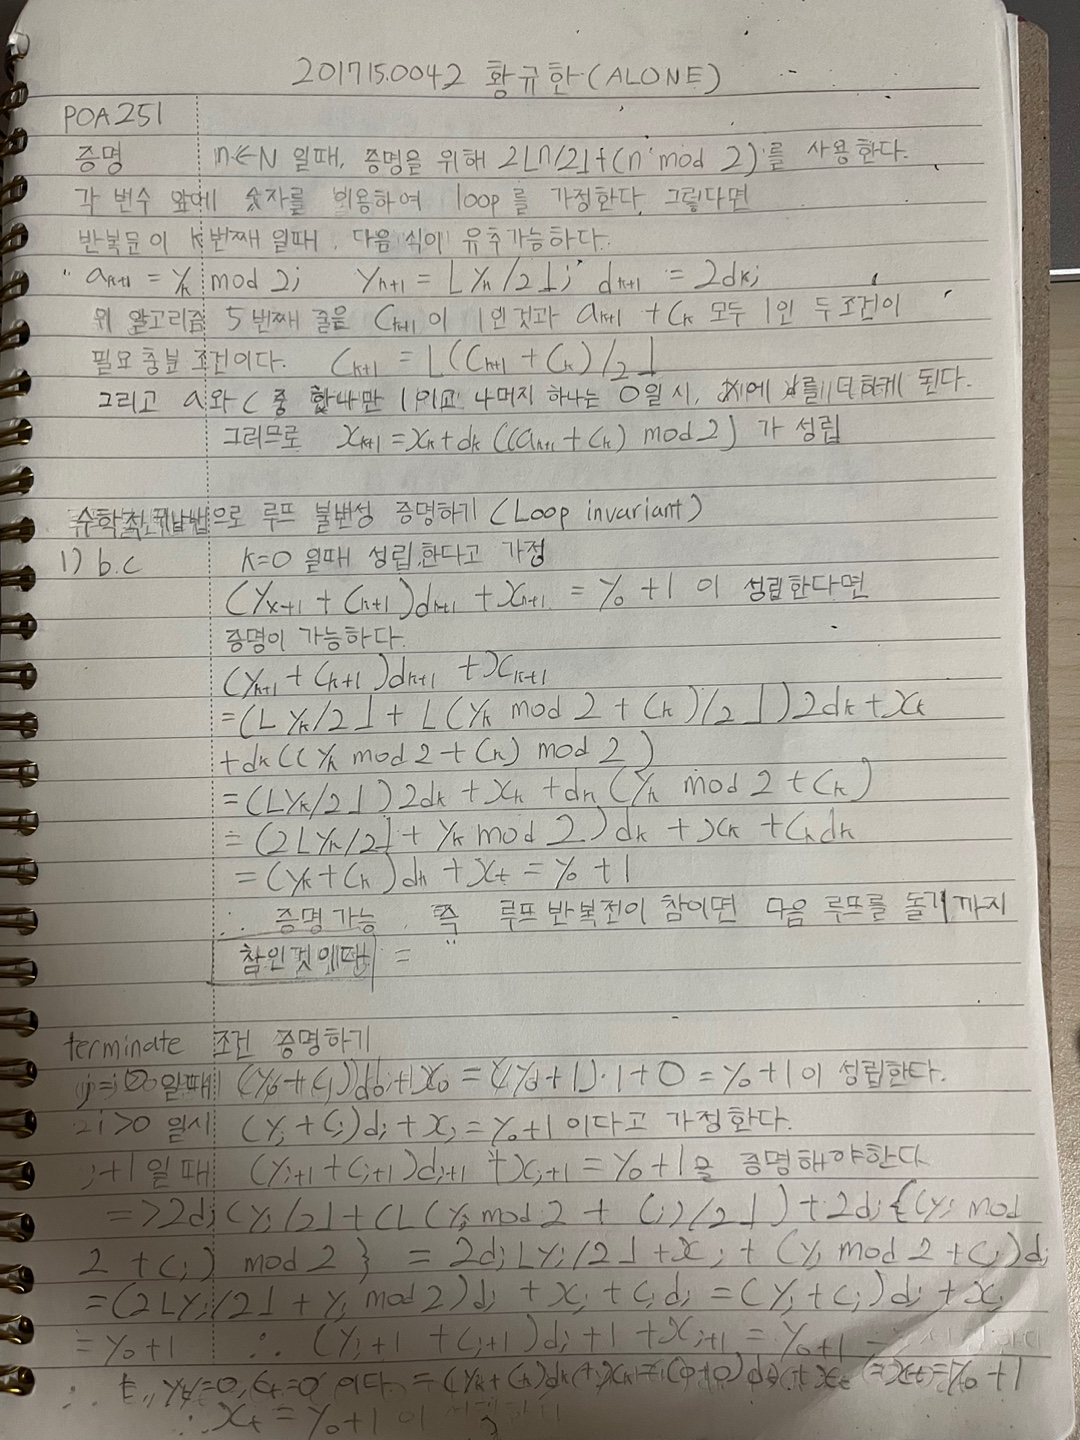 201715.0042 황규한(ALONE)
POA251
증명 n∈N 일때, 증명을 위해 2⌊n/2⌋+(n mod 2)를 사용한다.
각 변수 앞에 숫자를 이용하여 loop를 가정한다. 그렇다면
반복문이 k번째 일때, 다음 식이 유추가능하다.
a_{k+1} = y_k mod 2; y_{k+1} = ⌊y_k/2⌋; d_{k+1} = 2d_k;
위 알고리즘 5번째 줄은 C_{k+1}이 1인것과 a_{k+1} + C_k 모두 1인 두 조건이
필요충분 조건이다. C_{k+1} = ⌊(C_{k+1} + C_k)/2⌋
그리고 a와 c 중 하나만 1이고 나머지 하나는 0일시, 더하게 된다.
그러므로 x_{k+1} = x_k + d_k((a_{k+1} + C_k) mod 2) 가 성립
수학적 귀납법으로 루프 불변성 증명하기 (Loop invariant)
1) b.c k=0 일때 성립한다고 가정
(y_{k+1} + C_{k+1})d_{k+1} + x_{k+1} = y_0 + 1 이 성립한다면
증명이 가능하다.
(y_{k+1} + C_{k+1})d_{k+1} + x_{k+1}
= (⌊y_k/2⌋ + ⌊(y_k mod 2 + C_k)/2⌋)2d_k + x_k
+ d_k((y_k mod 2 + C_k) mod 2)
= (⌊y_k/2⌋)2d_k + x_k + d_k(y_k mod 2 + C_k)
= (2⌊y_k/2⌋ + y_k mod 2)d_k + x_k + C_k d_k
= (y_k + C_k)d_k + x_t = y_0 + 1
∴ 증명가능. 즉 루프 반복전이 참이면 다음 루프를 돌기까지
참인 =
terminate 조건 증명하기
일때 = y_0+1이 성립한다.
i>0 일시 (y_i + C_i)d_i + x_i = y_0+1 이다고 가정한다.
i+1일때 (y_{i+1} + C_{i+1})d_{i+1} + x_{i+1} = y_0+1을 증명해야한다
=>2d_i(y_i/2⌋+(⌊(y_i mod 2 + C_i)/2⌋)+2d_i{(y_i mod
2 + C_i) mod 2} = 2d_i⌊y_i/2⌋ + x_i + (y_i mod 2 + C_i)d_i
= (2⌊y_i/2⌋ + y_i mod 2)d_i + x_i + C_i d_i = (y_i + C_i)d_i + x_i
= y_0+1 ∴ (y_{i+1} + C_{i+1})d_i+1 + x_{i+1} = y_0+1
∴ 이다 = y_0 + 1
∴ x_t = y_0+1 이